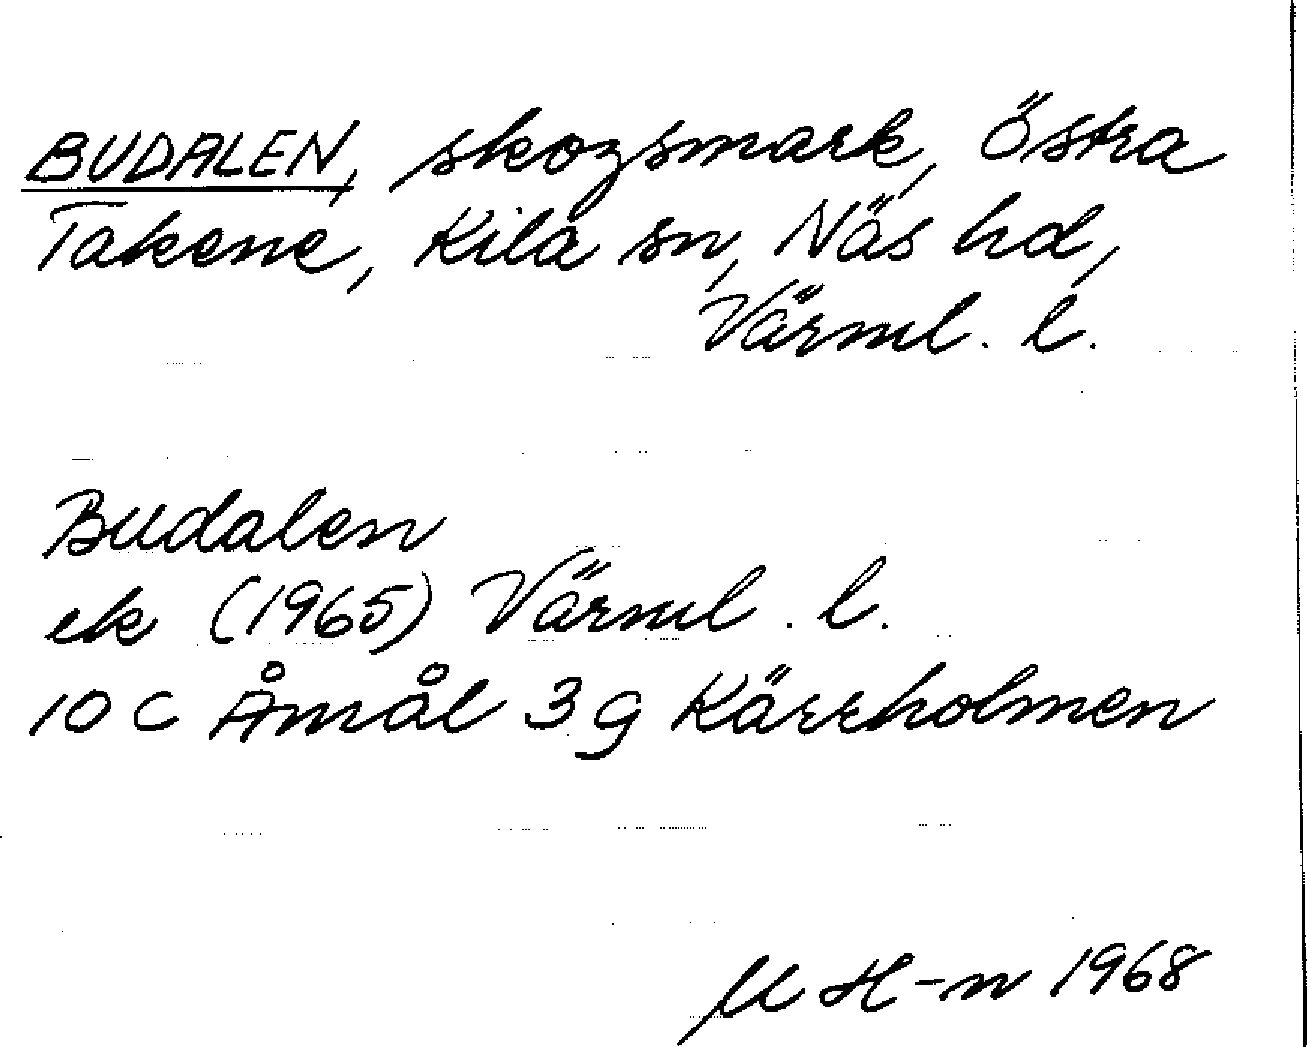 BUDALEN, skogsmark, Östra
Takene, Kila sn, Näs hd,
Värml. l.
Budalen
ek (1965) Värml. l.
10 C Åmål 3 g Kärrholmen
M H-n 1968